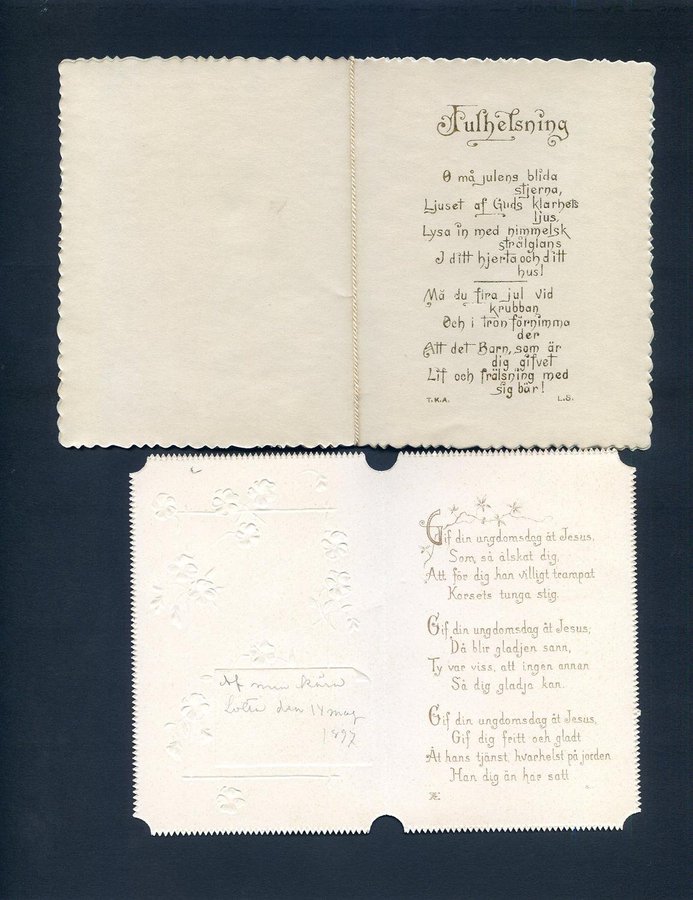 Julhelsning
O må julens blida
stjerna,
Ljuset af Guds klarhets
ljus,
Lysa in med himmelsk
strålglans
I ditt hjerta och ditt
hus!
Må du fira jul vid
krubban
Och i tron förnimma
der
Att det Barn, som är
dig gifvet
Lif och frälsning med
sig bär!
T.K.A. L.S.
Af min kära
den 14 maj
1897
Gif din ungdomsdag åt Jesus,
Som så älskat dig,
Att för dig han villigt trampat
Korsets tunga stig.
Gif din ungdomsdag åt Jesus;
Då blir gladjen sann,
Ty var viss, att ingen annan
Så dig gladja kan.
Gif din ungdomsdag åt Jesus,
Gif dig fritt och gladt
Åt hans tjänst, hvarhelst på jorden
Han dig än har satt